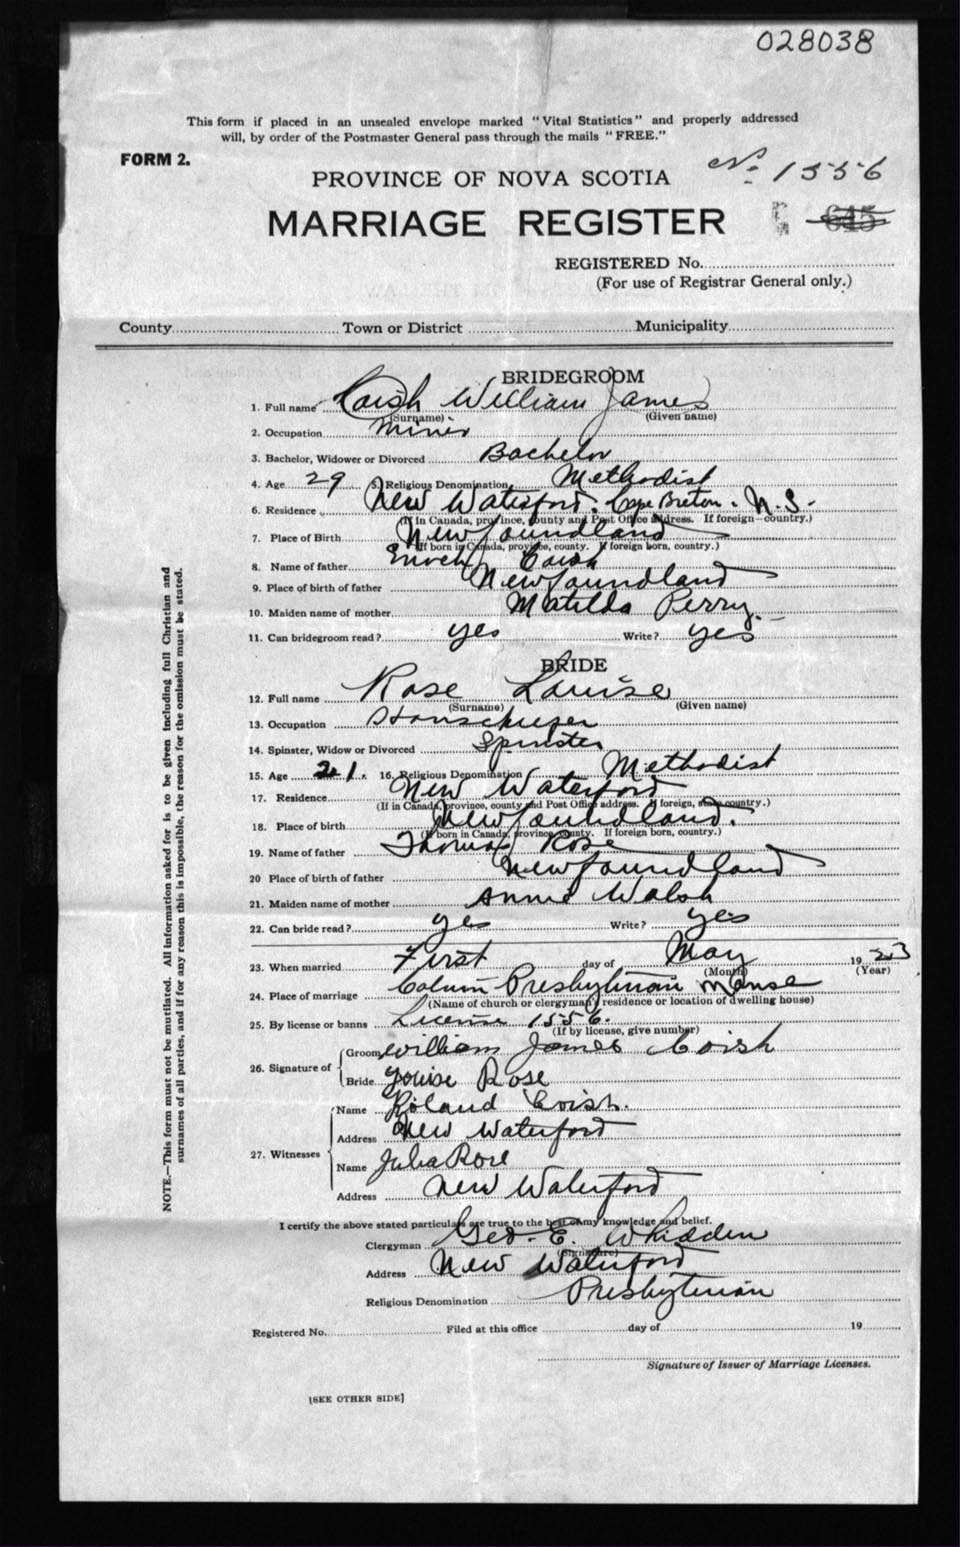 028038
This form if placed in an unsealed envelope marked "Vital Statistics" and properly addressed
will, by order of the Postmaster General pass through the mails "FREE."
FORM 2.
No. 1556
PROVINCE OF NOVA SCOTIA
MARRIAGE REGISTER
645
REGISTERED No.
(For use of Registrar General only.)
County Town or District Municipality
BRIDEGROOM
1. Full name Coish William James
(Surname) (Given name)
2. Occupation Miner
3. Bachelor, Widower or Divorced Bachelor
4. Age 29 5. Religious Denomination Methodist
6. Residence New Waterford. Cape Breton. N.S.
(If in Canada, province, county and Post Office address. If foreign—country.)
7. Place of Birth Newfoundland
(If born in Canada, province, county. If foreign born, country.)
8. Name of father Enoch Coish
9. Place of birth of father Newfoundland
10. Maiden name of mother Matilda Perry.
11. Can bridegroom read? yes Write? yes
BRIDE
12. Full name Rose Louise
(Surname) (Given name)
13. Occupation
14. Spinster, Widow or Divorced Spinster
15. Age 21. 16. Religious Denomination Methodist
17. Residence New Waterford
(If in Canada, province, county and Post Office address. If foreign, state country.)
18. Place of birth Newfoundland.
(If born in Canada, province, county. If foreign born, country.)
19. Name of father Thomas Rose
20 Place of birth of father Newfoundland
21. Maiden name of mother Annie Walsh
22. Can bride read? yes Write? yes
23. When married First day of May 1923
(Month) (Year)
24. Place of marriage Presbyterian Manse
(Name of church or clergyman's residence or location of dwelling house)
25. By license or banns License 1556.
(If by license, give number)
26. Signature of
Groom William James Coish
Bride Louise Rose
27. Witnesses
Name Roland Coish.
Address New Waterford
Name Julia Rose
Address New Waterford
I certify the above stated particulars are true to the best of my knowledge and belief.
Clergyman Geo. E. Whidden
(Signature)
Address New Waterford
Religious Denomination Presbyterian
Registered No. Filed at this office day of 19
Signature of Issuer of Marriage Licenses.
[SEE OTHER SIDE]
NOTE.—This form must not be mutilated. All information asked for is to be given including full Christian and
surnames of all parties, and if for any reason this is impossible, the reason for the omission must be stated.